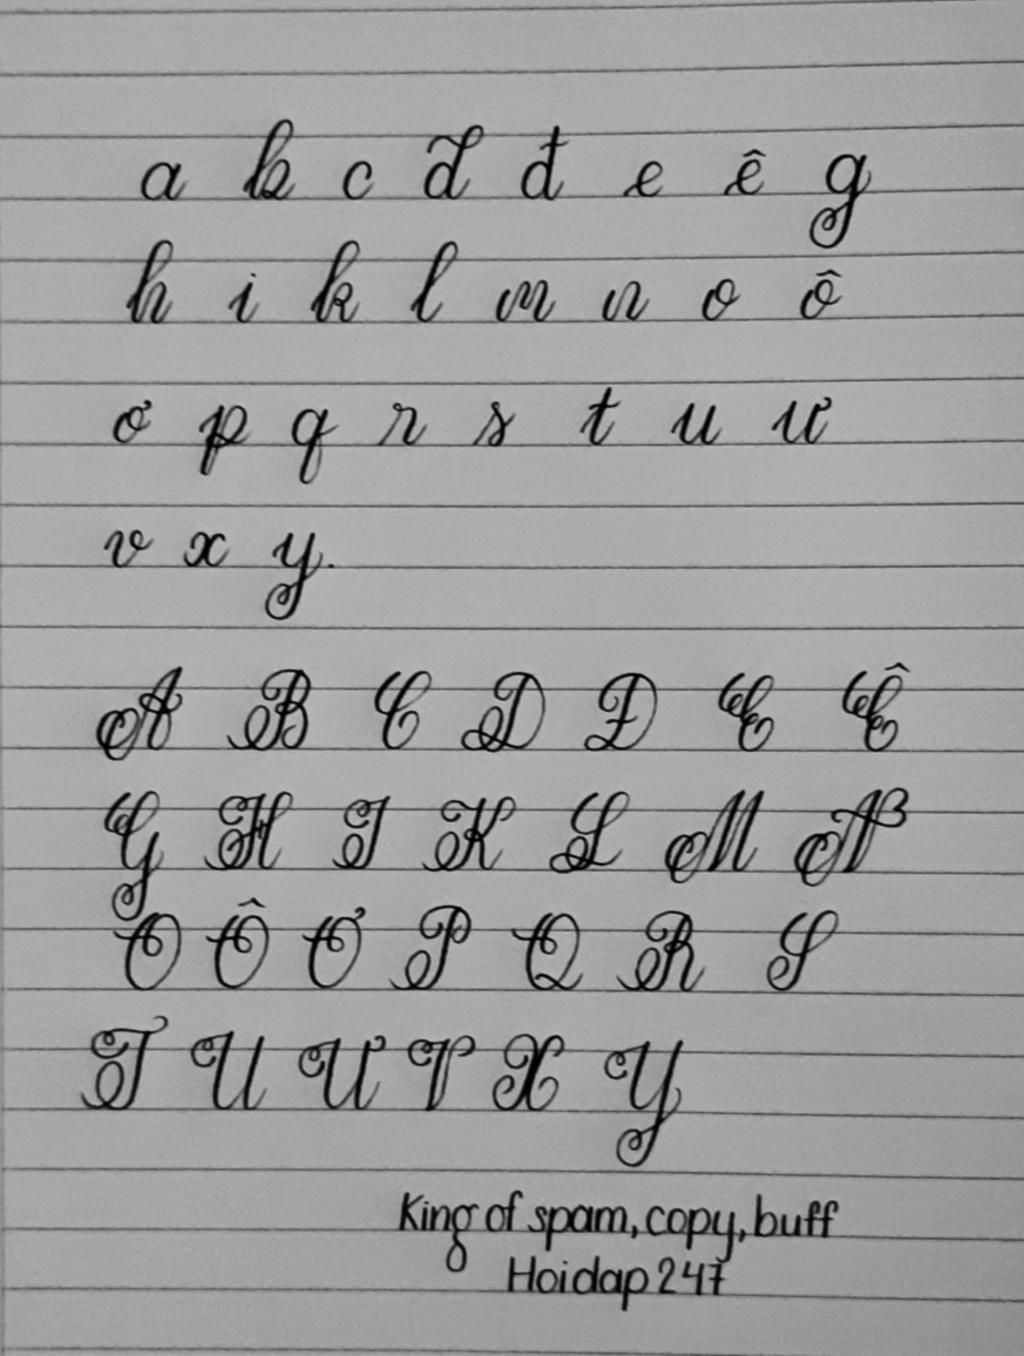 a b c d đ e ê g
h i k l m n o ô
ơ p q r s t u ư
v x y.
A B C D Đ E Ê
G H I K L M N
O Ô Ơ P Q R S
T U Ư V X Y
King of spam, copy, buff
Hoidap 247